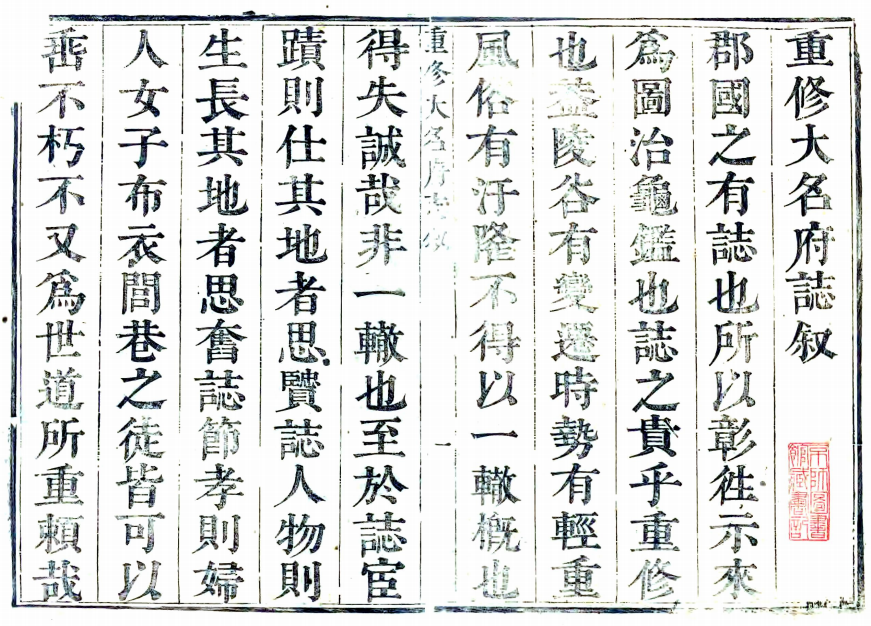 重修大名府誌叙
郡國之有誌也所以彰徃示來
爲圖治龜鑑也誌之貴乎重修
也葢陵谷有變遷時勢有輕重
風俗有汙隆不得以一轍概也
重修大名府志叙
一
得失誠哉非一轍也至於誌宦
蹟則仕其地者思贒誌人物則
生長其地者思奮誌節孝則婦
人女子布衣閭巷之徒皆可以
垂不朽不又爲世道所重頼哉